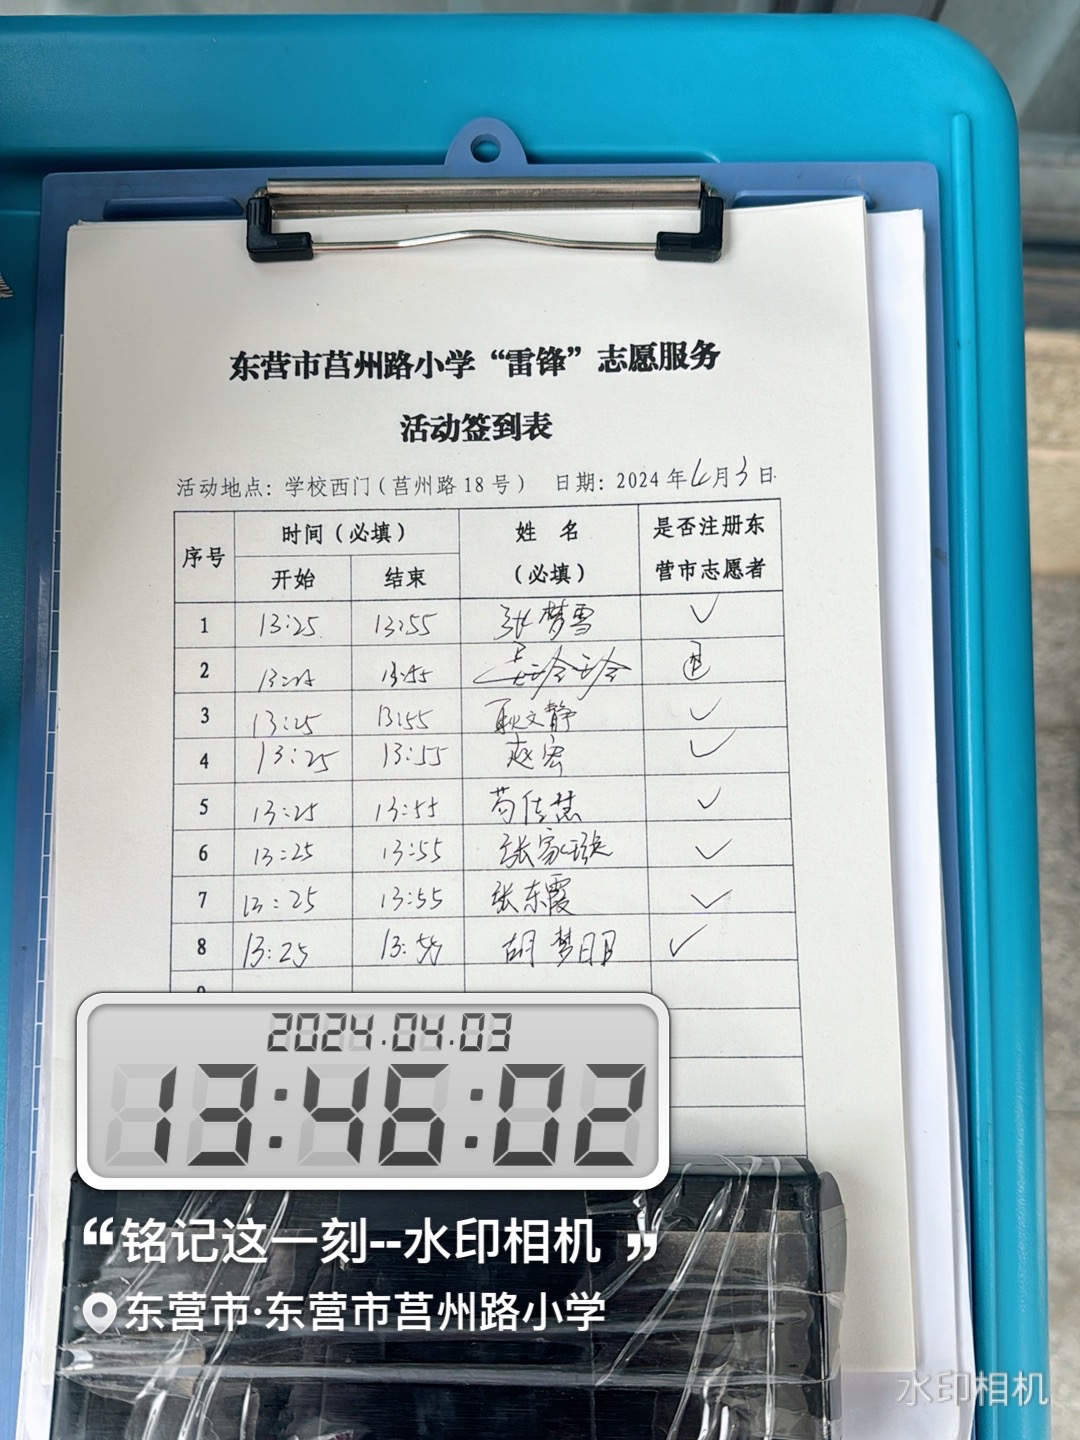 东营市莒州路小学“雷锋”志愿服务
活动签到表
活动地点：学校西门（莒州路18号） 日期：2024年4月3日
序号 时间（必填） 姓 名（必填） 是否注册东营市志愿者
开始 结束
1 13:25 13:55 张梦雪 ✓
2 13:25 13:55
3 13:25 13:55 耿文静 ✓
4 13:25 13:55 赵宏 ✓
5 13:25 13:55 ✓
6 13:25 13:55 张家璇 ✓
7 13:25 13:55 张东霞 ✓
8 13:25 13:55 胡梦明 ✓
2024.04.03
13:46:02
“铭记这一刻--水印相机”
东营市·东营市莒州路小学
水印相机